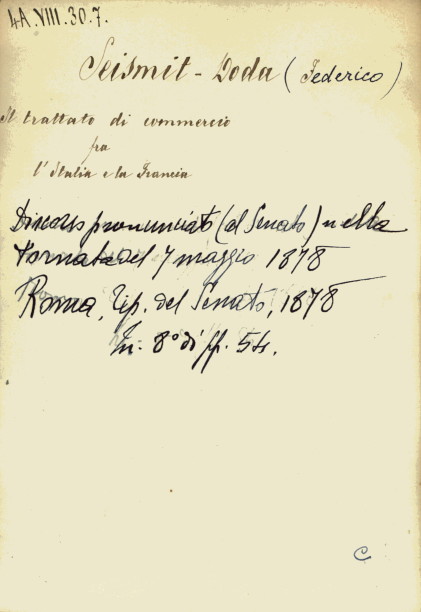 4A.VIII.30.7.
Seismit-Doda (Federico)
Il trattato di commercio
fra
l'Italia e la Francia
Discorso pronunciato (al Senato) nella
tornata del 7 maggio 1878
Roma, Tip. del Senato, 1878
In. 8° di pp. 54.
C